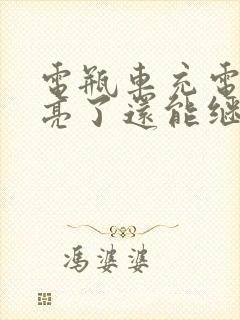 電瓶車充電
亮了還能繼
馮婆婆